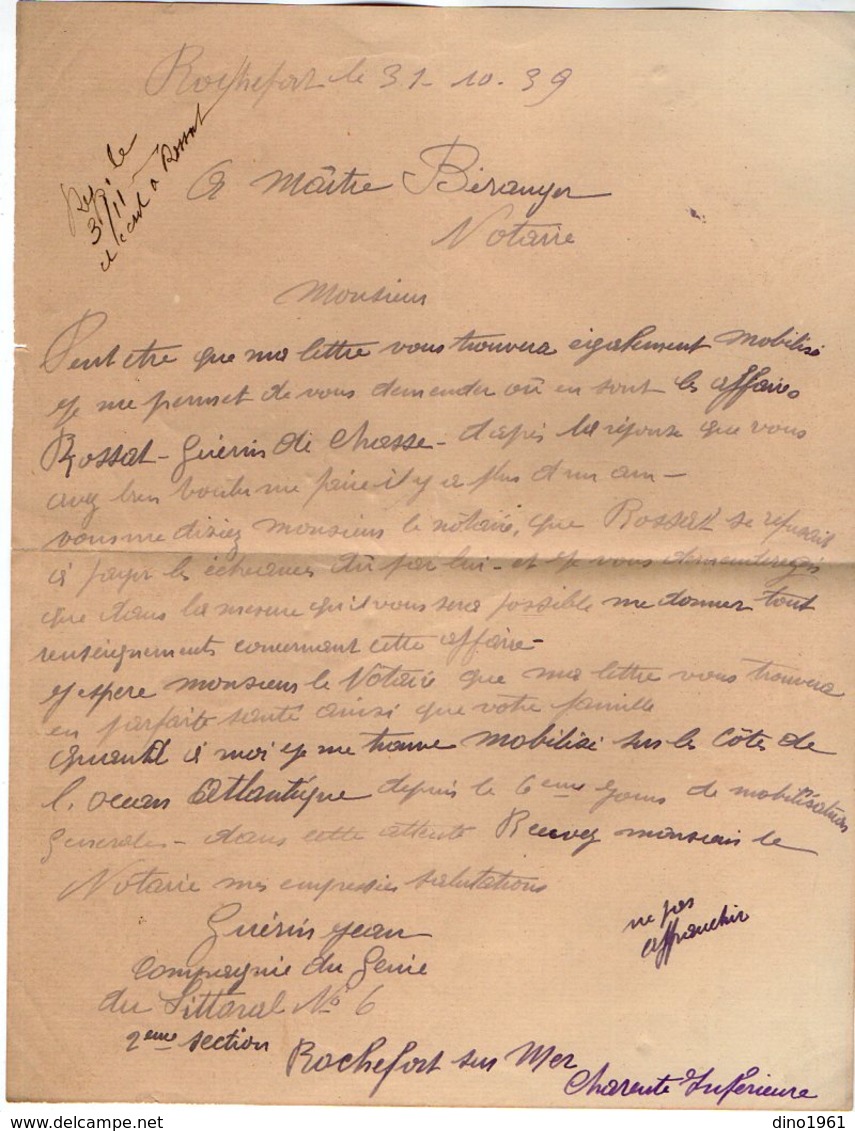 Rochefort le 31-10-39
Rep. le
3/11
et écrit à Rossat
A Maître Béranger
Notaire
Monsieur
Peut etre que ma lettre vous trouvera également mobilisé
Je me permet de vous demander où en sont les affaires
Rossat-Guérin de Chasse- d'après la réponse que vous
avez bien voulu me faire il y a plus d'un an-
vous me disiez monsieur le nôtaire, que Rossat se refusait
à payer les échéances dû par lui- et je vous demanderez
que dans la mesure qu'il vous sera possible me donner tout
renseignements concernant cette affaire-
J'espere monsieur le Notaire que ma lettre vous trouvera
en parfaite santé ainsi que votre famille
Quand à moi je me trouve mobilisé sur les Côtes de
l'ocean Atlantique depuis le 6eme jours de mobilisation
Generales- dans cette attente Recevez monsieur le
Notaire mes empressées salutations
Guérin Jean
Compagnie du Genie
du Littoral No 6
2eme section
ne pas
affranchir
Rochefort sur Mer
Charente Inférieure
dino1961